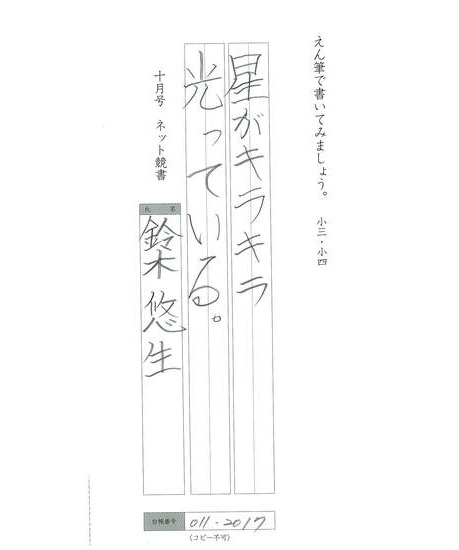 えん筆で書いてみましょう。 小三・小四
星がキラキラ
光っている。
十月号 ネット競書
氏 名
鈴木悠生
台帳番号 011-2017
(コピー不可)